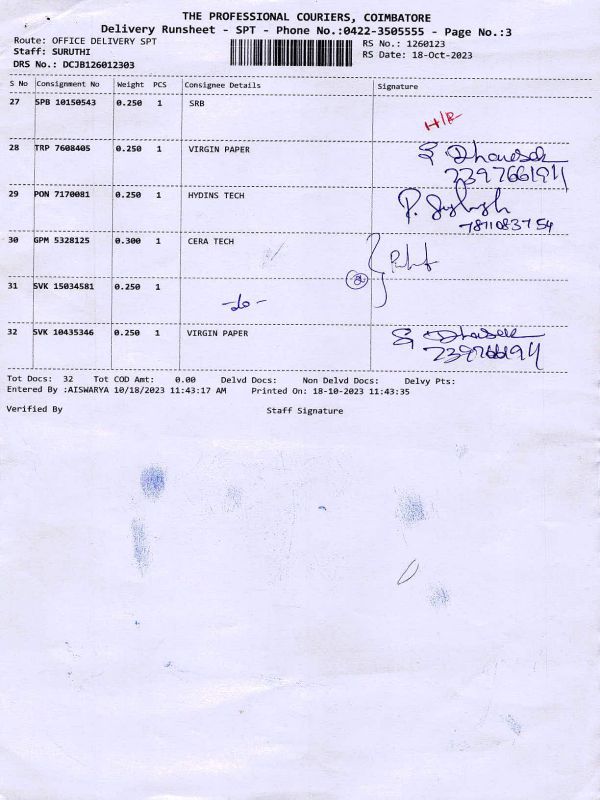 THE PROFESSIONAL COURIERS, COIMBATORE
Delivery Runsheet - SPT - Phone No.:0422-3505555 - Page No.:3
Route: OFFICE DELIVERY SPT
RS No.: 1260123
Staff: SURUTHI
RS Date: 18-Oct-2023
DRS No.: DCJB126012303
S No Consignment No Weight PCS Consignee Details Signature
27 SPB 10150543 0.250 1 SRB
H/R
28 TRP 7608405 0.250 1 VIRGIN PAPER
29 PON 7170081 0.250 1 HYDINS TECH
7811083754
30 GPM 5328125 0.300 1 CERA TECH
31 SVK 15034581 0.250 1
-do-
32 SVK 10435346 0.250 1 VIRGIN PAPER
Tot Docs: 32 Tot COD Amt: 0.00 Delvd Docs: Non Delvd Docs: Delvy Pts:
Entered By :AISWARYA 10/18/2023 11:43:17 AM Printed On: 18-10-2023 11:43:35
Verified By Staff Signature